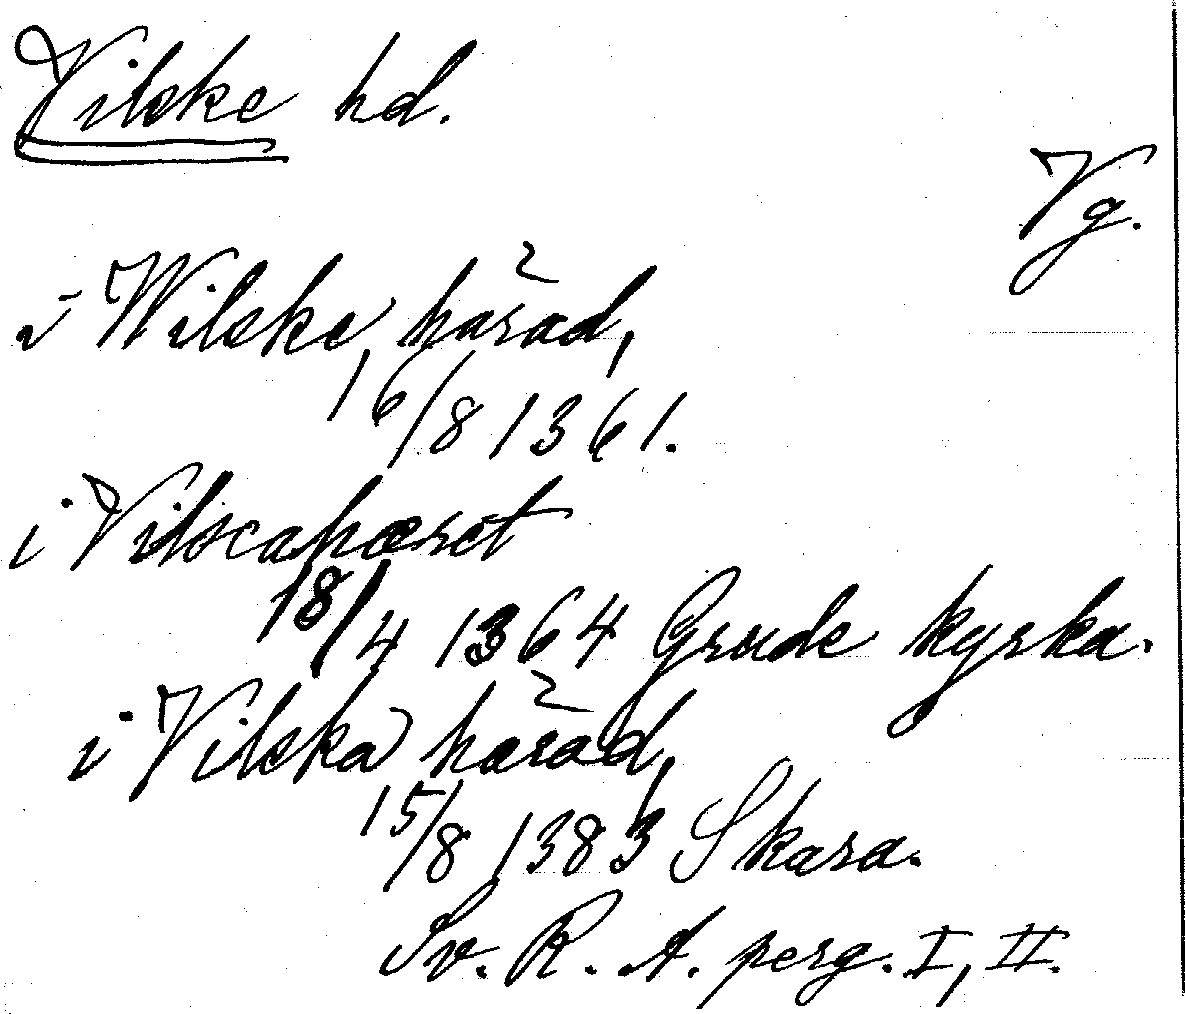 Vilske hd.
Vg.
i Wilske härad,
16/8 1361.
i Vilscahæret
18/4 1364 Grude kyrka.
i Vilska härad,
15/8 1383 Skara.
Sv. R. A. perg. I, II.